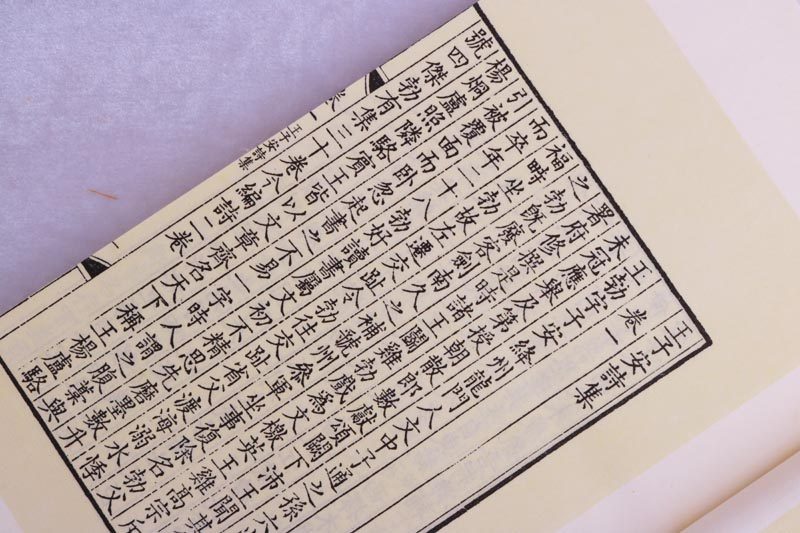 王子安詩集
卷一
王勃字子安絳州龍門人文中子通之孫六
未冠應舉及第授朝散郎數獻頌闕下沛王聞其
署府修撰是時諸王鬭雞勃戲爲文檄英王雞高宗斥
之勃既廢客劍南久之補虢州參軍坐事復除名勃父
福畤坐勃故左遷交趾令勃往交趾省父渡海溺水悸
而卒年二十八勃好讀書屬文初不精思先磨墨數升
引被覆面而臥忽起書之不易一字時人謂之腹藁與
楊炯盧照隣駱賓王皆以文章齊名天下稱王楊盧駱
號四傑勃有集三十卷今編詩二卷
王子安詩集
卷一